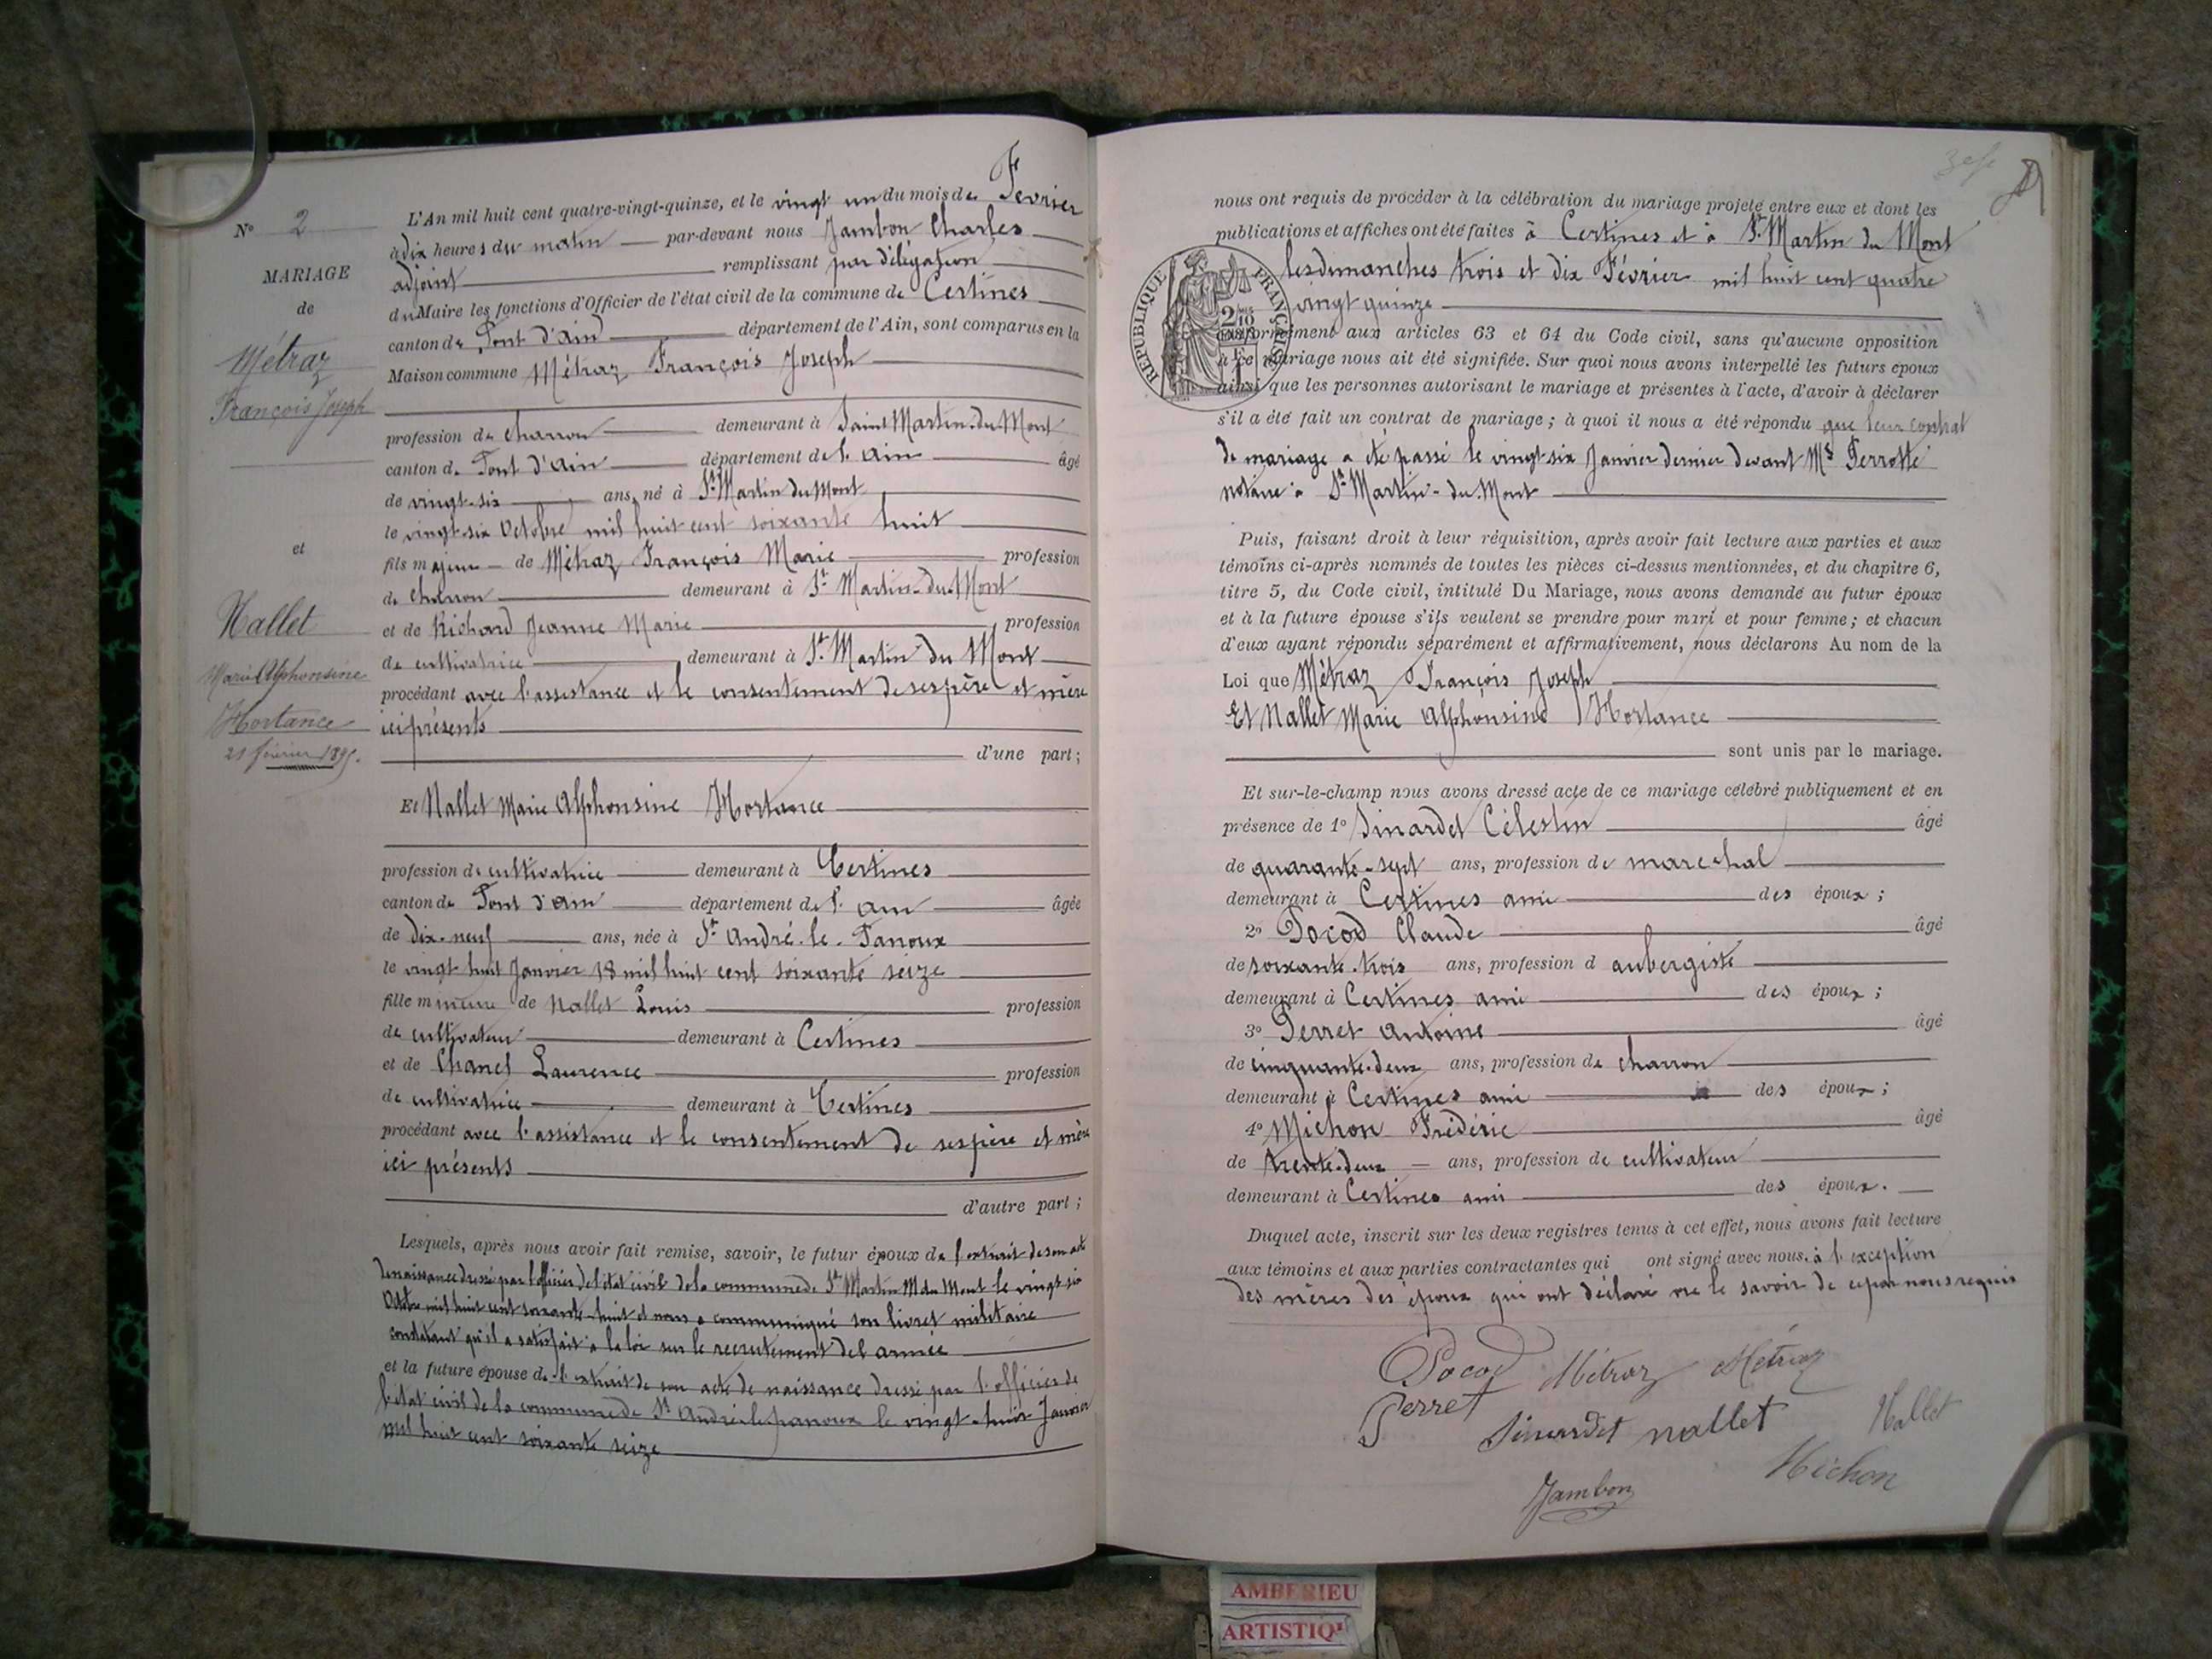 N° 2
MARIAGE
de
Métraz
François Joseph
et
Nallet
Marie Alphonsine
Hortance
21 février 1895.
L'An mil huit cent quatre-vingt-quinze, et le vingt un du mois de Fevrier
à dix heures du matin par-devant nous Jambon Charles
adjoint remplissant par délégation
du Maire les fonctions d'Officier de l'état civil de la commune de Certines
canton de Pont d'Ain département de l'Ain, sont comparus en la
Maison commune Métraz François Joseph
profession de charron demeurant à Saint Martin-du-Mont
canton de Pont d'Ain département de l'Ain âgé
de vingt-six ans, né à St Martin du Mont
le vingt-six Octobre mil huit cent soixante huit
fils majeur de Métraz François Marie profession
de charron demeurant à St Martin-du-Mont
et de Richard Jeanne Marie profession
de cultivatrice demeurant à St Martin du Mont
procédant avec l'assistance et le consentement de ses père et mère
ici présents
d'une part ;
Et Nallet Marie Alphonsine Hortance
profession de cultivatrice demeurant à Certines
canton de Pont d'Ain département de l'Ain âgée
de dix-neuf ans, née à St André-le-Panoux
le vingt huit Janvier 18 mil huit cent soixante seize
fille mineure de Nallet Louis profession
de cultivateur demeurant à Certines
et de Chanel Laurence profession
de cultivatrice demeurant à Certines
procédant avec l'assistance et le consentement de ses père et mère
ici présents
d'autre part ;
Lesquels, après nous avoir fait remise, savoir, le futur époux de l'extrait de son acte
de naissance dressé par l'officier de l'état civil de la commune de St Martin M du Mont le vingt-six
Octobre mil huit cent soixante-huit et nous a communiqué son livret militaire
constatant qu'il a satisfait à la loi sur le recrutement de l'armée
et la future épouse de l'extrait de son acte de naissance dressé par l'officier de
l'état civil de la commune de St André le panoux le vingt-huit Janvier
mil huit cent soixante seize
nous ont requis de procéder à la célébration du mariage projeté entre eux et dont les
publications et affiches ont été faites à Certines et à St Martin du Mont
les dimanches trois et dix Février mil huit cent quatre
vingt quinze
REPUBLIQUE FRANÇAISE
conformément aux articles 63 et 64 du Code civil, sans qu'aucune opposition
à ce mariage nous ait été signifiée. Sur quoi nous avons interpellé les futurs époux
ainsi que les personnes autorisant le mariage et présentes à l'acte, d'avoir à déclarer
s'il a été fait un contrat de mariage ; à quoi il nous a été répondu que leur contrat
de mariage a été passé le vingt-six Janvier dernier devant Me Perrotte
notaire à St Martin-du-Mont
Puis, faisant droit à leur réquisition, après avoir fait lecture aux parties et aux
témoins ci-après nommés de toutes les pièces ci-dessus mentionnées, et du chapitre 6,
titre 5, du Code civil, intitulé Du Mariage, nous avons demandé au futur époux
et à la future épouse s'ils veulent se prendre pour mari et pour femme ; et chacun
d'eux ayant répondu séparément et affirmativement, nous déclarons Au nom de la
Loi que Métraz François Joseph
Et Nallet Marie Alphonsine Hortance
sont unis par le mariage.
Et sur-le-champ nous avons dressé acte de ce mariage célébré publiquement et en
présence de 1° Sinardet Célestin âgé
de quarante-sept ans, profession de marechal
demeurant à Certines ami des époux ;
2° Pocod Claude âgé
de soixante-trois ans, profession d aubergiste
demeurant à Certines ami des époux ;
3° Perret Antoine âgé
de cinquante-deux ans, profession de charron
demeurant à Certines ami des époux ;
4° Michon Frédéric âgé
de trente-deux ans, profession de cultivateur
demeurant à Certines ami des époux.
Duquel acte, inscrit sur les deux registres tenus à cet effet, nous avons fait lecture
aux témoins et aux parties contractantes qui ont signé avec nous. à l'exception
des mères des époux qui ont déclaré ne le savoir de ce par nous requis
Pocod Métraz Métraz
Perret Sinardet nallet Nallet
Michon
Jambon
AMBERIEU
ARTISTIQ